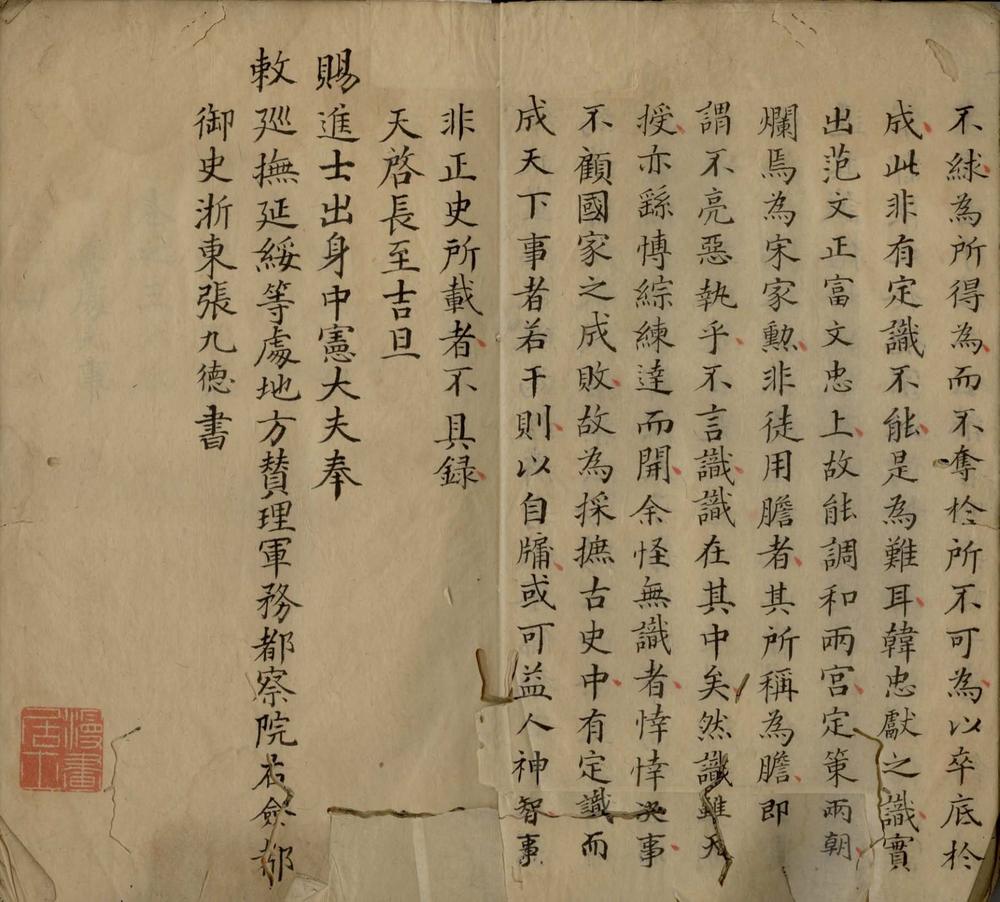 不絿為所得為而不奪於所不可為以卒底於
成此非有定識不能是為難耳韓忠獻之識實
出范文正富文忠上故能調和兩宮定策兩朝
爛焉為宋家勲非徒用膽者其所稱為膽即
謂不亮惡執乎不言識識在其中矣然識雖天
授亦繇博綜練達而開余怪無識者悻悻决事
不顧國家之成敗故為採摭古史中有定識而
成天下事者若干則以自牖或可益人神智事
非正史所載者不具録
天啓長至吉旦
賜進士出身中憲大夫奉
敕廵撫延綏等處地方贊理軍務都察院右僉都
御史浙東張九德書
漫畫居士